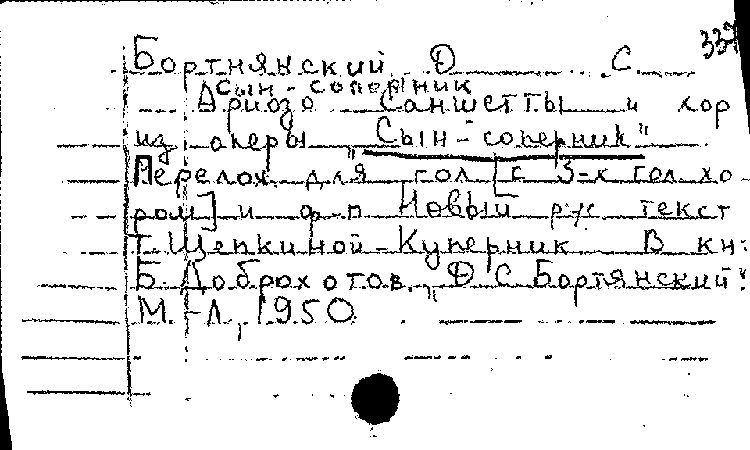 337
Бортнянский Д С
Сын-соперник
Ариозо Саншетты и хор
из оперы "Сын-соперник"
Перелож для гол [с 3-х гол хо-
ром] и ф-п Новый рус текст
Т. Щепкиной-Куперник В кн:
Б. Доброхотов. "Д С Бортянский"
М.-Л, 1950